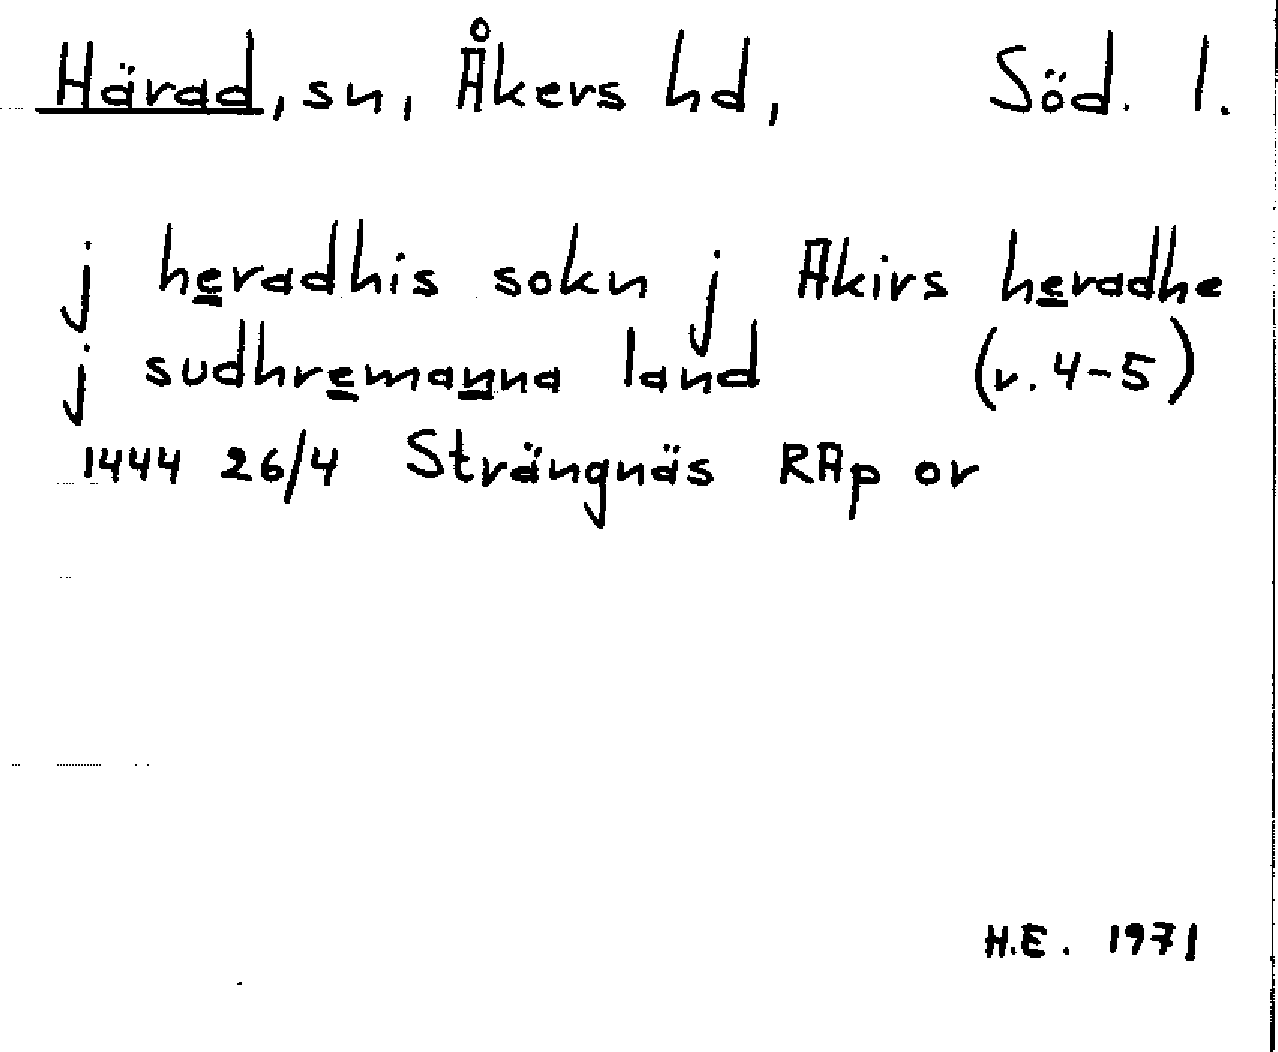 Härad, sn, Åkers hd, Söd. l.
j heradhis sokn j Akirs heradhe
j sudhremanna land (r. 4-5)
1444 26/4 Strängnäs RAp or
H.E. 1971